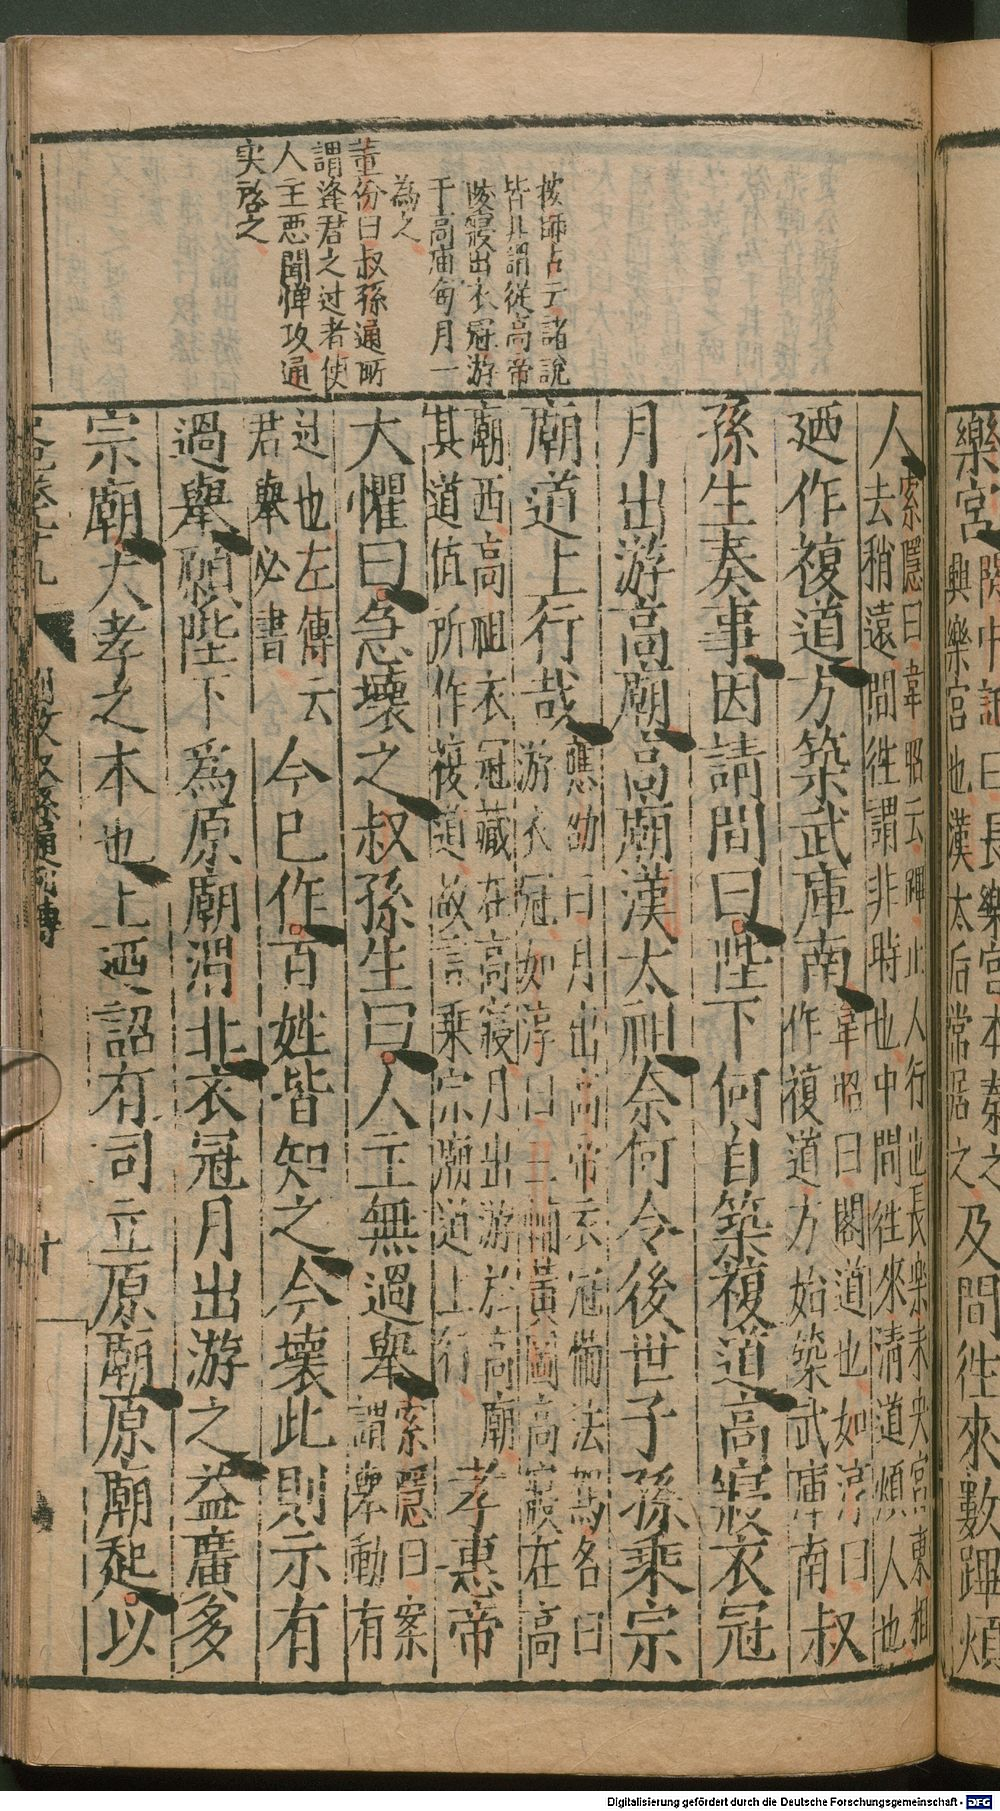 樂宮關中記曰長樂宮本秦之
興樂宮也漢太后常居之及間往來數蹕煩
按師古云諸說
皆非謂從高帝
陵寢出衣冠游
于高庙每月一
為之
董份曰叔孫通所
謂逢君之过者使
人主恶聞惮攻通
实啓之
人索隱曰韋昭云蹕止人行也長樂未央宮東相
去稍遠間往謂非時也中間往來清道煩人也
廼作複道方築武庫南韋昭曰閣道也如淳曰
作複道方始築武庫南叔
孫生奏事因請間曰陛下何自築複道高寢衣冠
月出游高廟高廟漢太祖奈何令後世子孫乘宗
廟道上行哉應劭曰月出高帝衣冠備法駕名曰
游衣冠如淳曰三輔黃圖高寢在高
廟西高祖衣冠藏在高寢月出游於高廟
其道值所作複道故言乘宗廟道上行孝惠帝
大懼曰急壞之叔孫生曰人主無過舉索隱曰案
謂舉動有
过也左傳云
君舉必書今已作百姓皆知之今壞此則示有
過舉願陛下爲原廟渭北衣冠月出游之益廣多
宗廟大孝之本也上廼詔有司立原廟原廟起以
史記卷九十九 劉敬叔孫通列傳 十
Digitalisierung gefördert durch die Deutsche Forschungsgemeinschaft - DFG